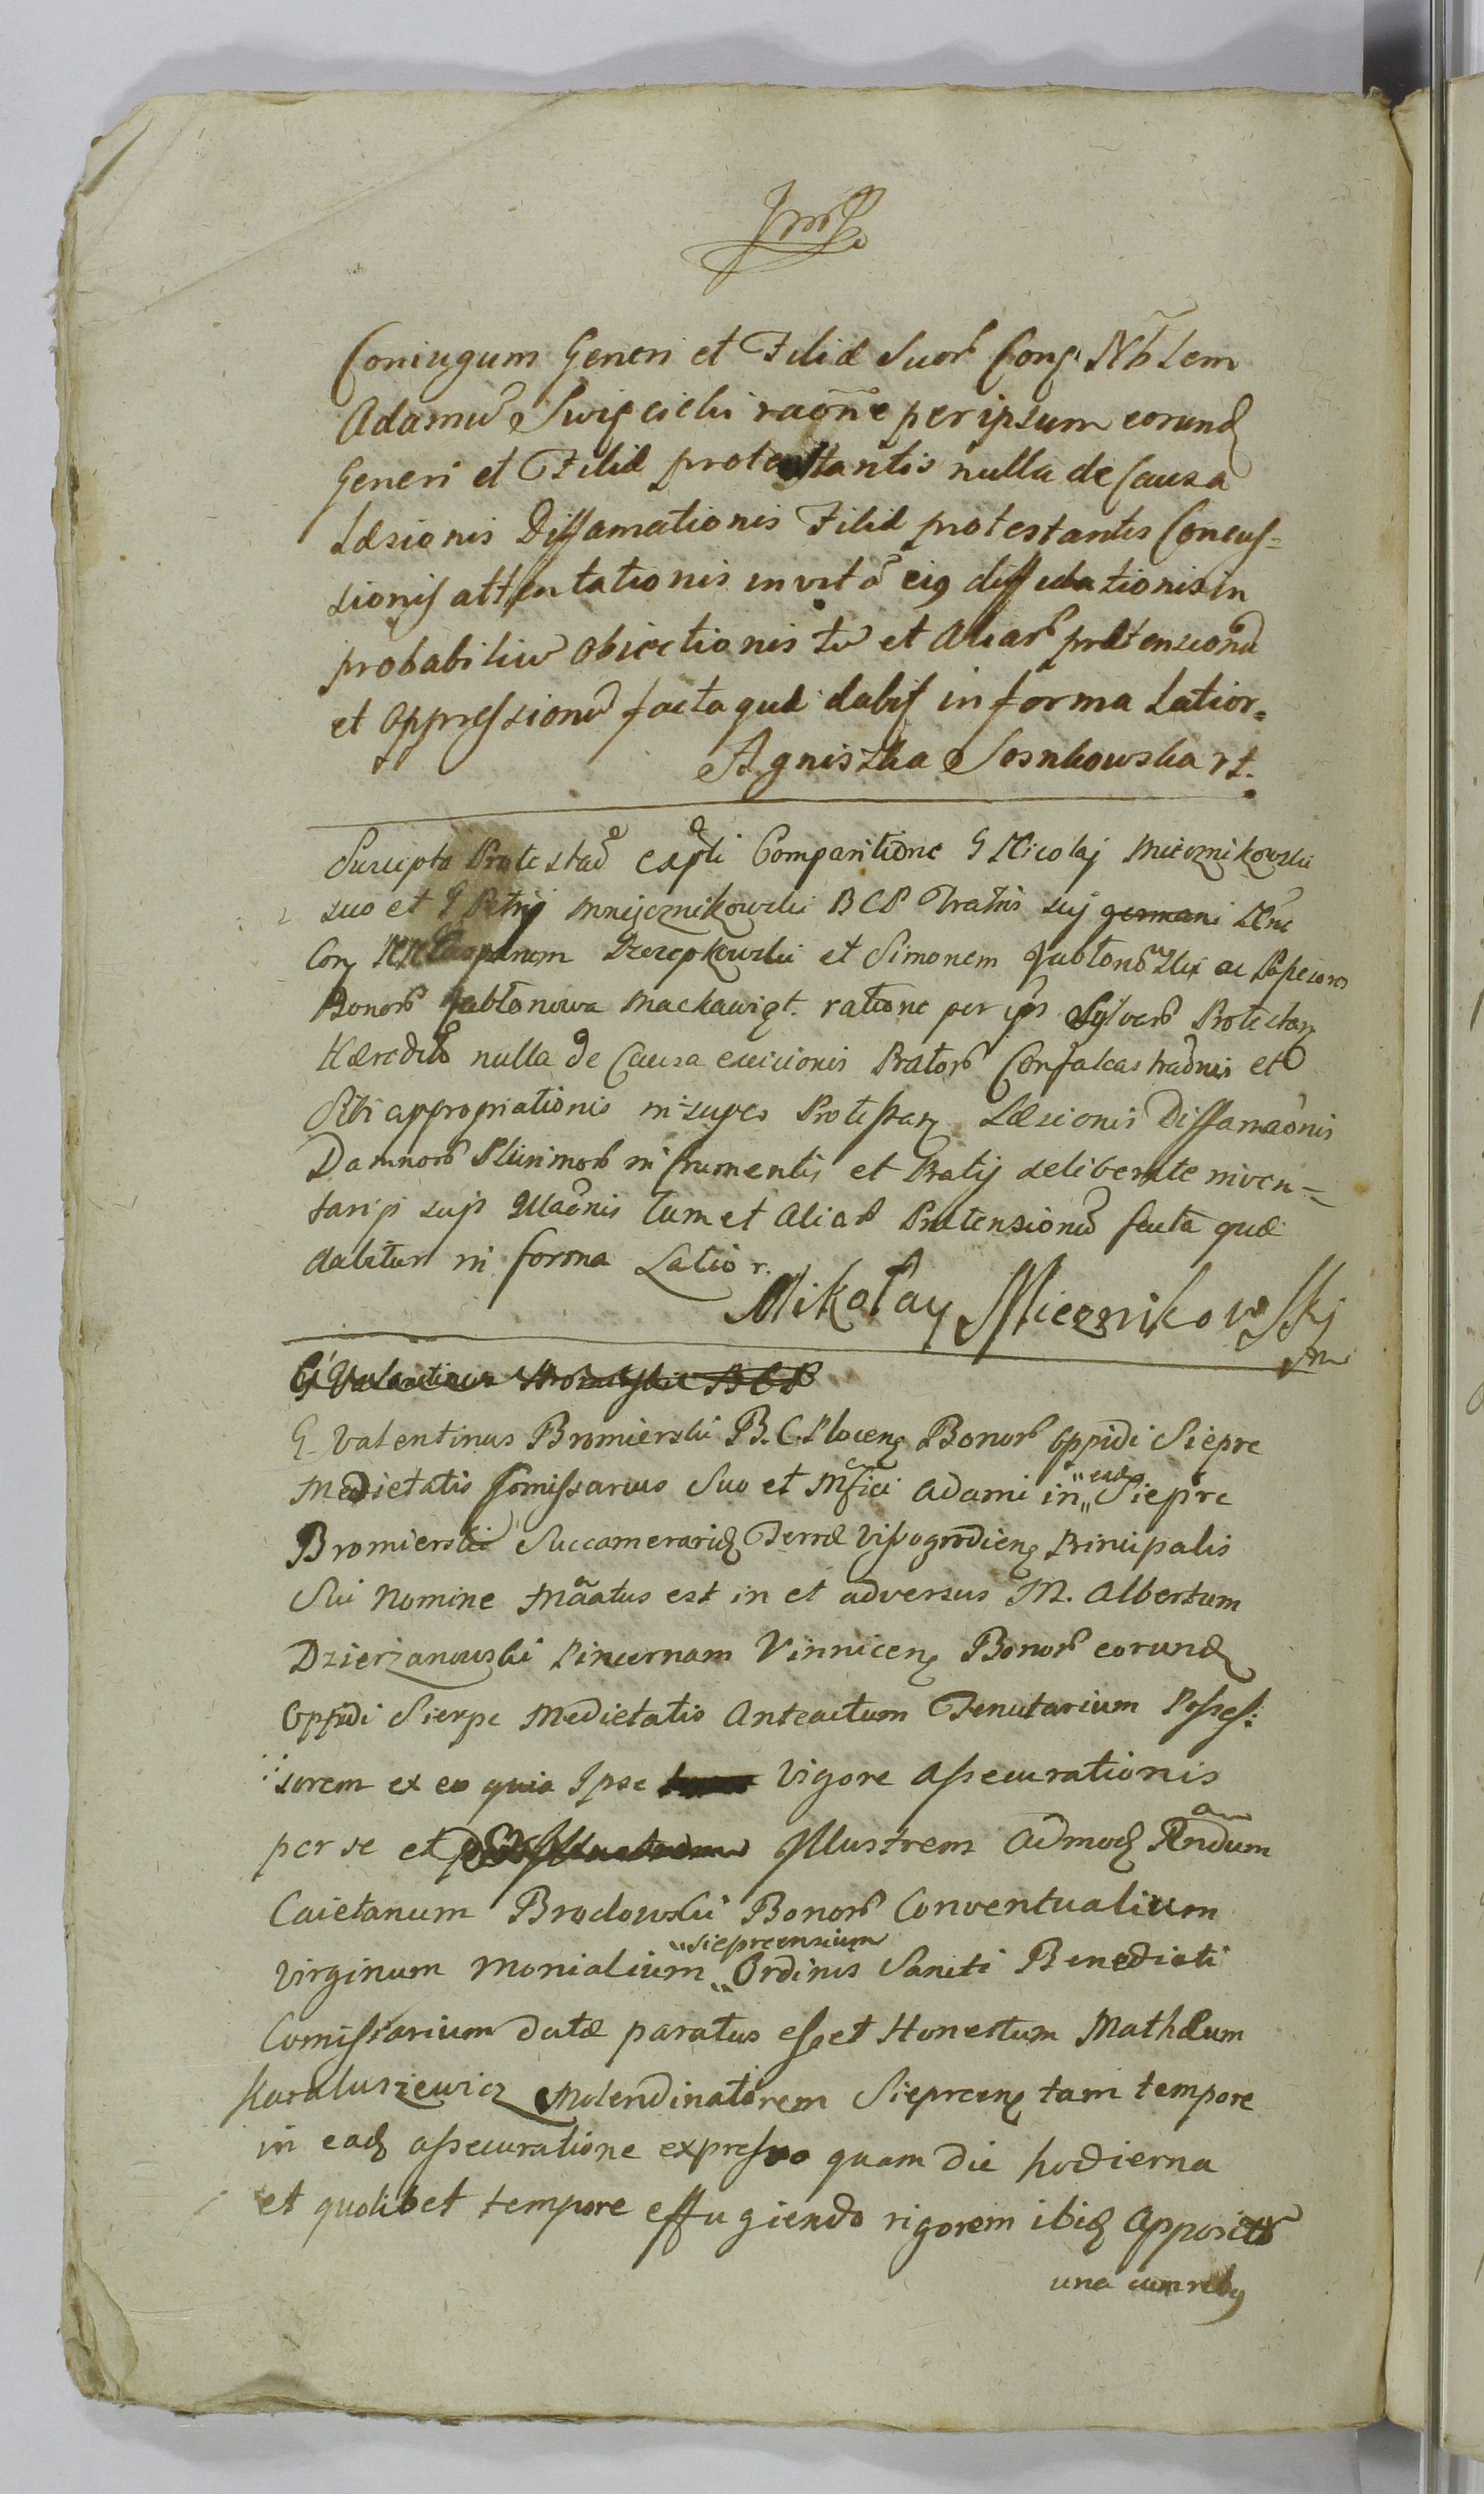 Coniugum Generi et Filiæ Suor Conₓ Nblem
Adamū Swięcicki raõne per ipsum eorund
Generi et Filiæ protestantis nulla de Causa
Læsionis Diffamationis Filiæ protestantis Concus=
sionis attentationis in vitã eiꝯ diffidationis in
probabiliū obiectionis tū et aliar prætensionū
et oppressionū facta quæ dabit in forma Latior.
Agniszka Sosnkowska rt.
Suscepta Protestaõ expti Comparitione G Nicolaj Mieznikowski
suo et G Petrij Mniſcznikowski BCP Fratris sui germani Nne
Con NN Casparum Rzeszpkowski et Simonem Jabłonowski ac Possessores
Bonor Jabłonowa Mackawięt. ratione per ips Sylvar Protestan
Hæredit nulla de Causa excisionis Prator Confalcastraõnis et
Sibi appropriationis in super Protestan Læsionis Diffamaõnis
Damnor Plurimor in frumentis et Pratis deliberate inven=
tarijs suis Illaõnis tum et Aliar Prætensionū facta quæ
dabitur in forma Latior.
Mikołay Mieznikowski
mp
G Valentinus Bromierski BCP
G. Valentinus Bromierski B. C. Plocenꝫ Bonor Oppidi Siepre
Medietatis Comissarius Suo et Mfici Adami in „ead„ Siepre
Bromierski Succamerarij Terræ Vissogrodienꝫ Principalis
Sui Nomine Mãatus est in et adversus M. Albertum
Dzierżanowski Pincernam Vinnicenꝫ Bonor eorund
Oppidi Sierpc Medietatis Anteactum Tenutarium Posses:
sorem ex eo quia Ipse Vigore Assecurationis
per se et Illustrem Admod Rndum
Caietanum Brodowski Bonor Conventualium
Virginum Monialium „Siepreensium„ Ordinis Sancti Benedicti
Comissarium datæ paratus esset Honestum Mathæum
Karaluszewicz Molendinatorem Siepreenꝫ tam tempore
in ead assecuratione expresso quam die hodierna
et quolibet tempore effugiendo rigorem ibid apposit
una cum rebꝯ